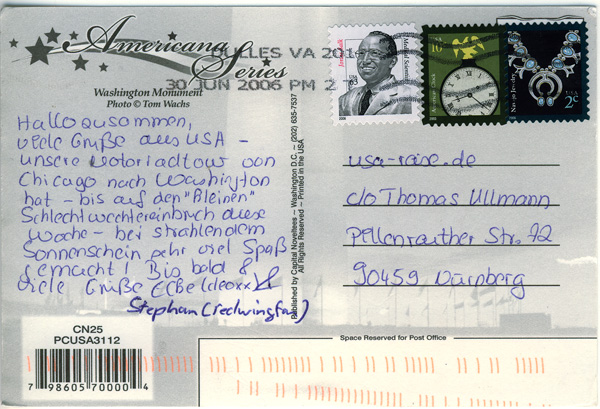 Americana
Series
Washington Monument
Photo © Tom Wachs
DULLES VA 201
30 JUN 2006 PM 2 T
Hallo zusammen,
viele Grüße aus USA -
unsere Motorradtour von
Chicago nach Washington
hat - bis auf den "kleinen"
Schlechtwettereinbruch diese
Woche - bei strahlendem
Sonnenschein sehr viel Spaß
gemacht! Bis bald &
viele Grüße
Stephan (redwingfan)
Published by Capital Noveltees – Washington D.C. – (202) 635-7537
All Rights Reserved – Printed in the USA
USA
10
USA
2¢
usa-reise.de
c/o Thomas Ullmann
Pellenreuther Str. 72
90459 Nürnberg
Space Reserved for Post Office
CN25
PCUSA3112
7 98605 70000 4